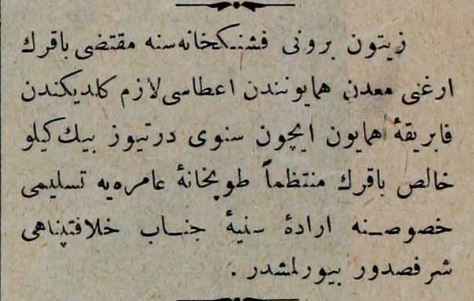 زيتون برونى فشنكخانه‌سنه مقتضى باقرك
ارغنى معدن همايونندن اعطاسى لازم كلديكندن
فابريقۀ همايون ايچون سنوى درتيوز بيك كيلو
خالص باقرك منتظماً طوپخانۀ عامره‌يه تسليمى
خصوصـنه ارادۀ سنيۀ جنـاب خلافتپناهى
شرفصدور بيورلمشدر .